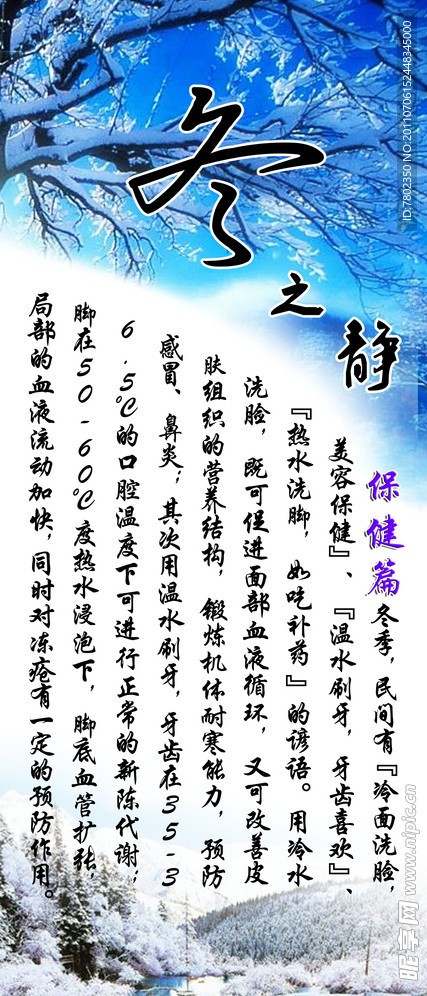 冬
之
静
保健篇
冬季，民间有『冷面洗脸，
美容保健』、『温水刷牙，牙齿喜欢』、
『热水洗脚，如吃补药』的谚语。用冷水
洗脸，既可促进面部血液循环，又可改善皮
肤组织的营养结构，锻炼机体耐寒能力，预防
感冒、鼻炎；其次用温水刷牙，牙齿在35-3
6.5℃的口腔温度下可进行正常的新陈代谢；
脚在50-60℃度热水浸泡下，脚底血管扩张，
局部的血液流动加快，同时对冻疮有一定的预防作用。
ID:7802350 NO:20110706152448345000
昵享网 www.nipic.cn